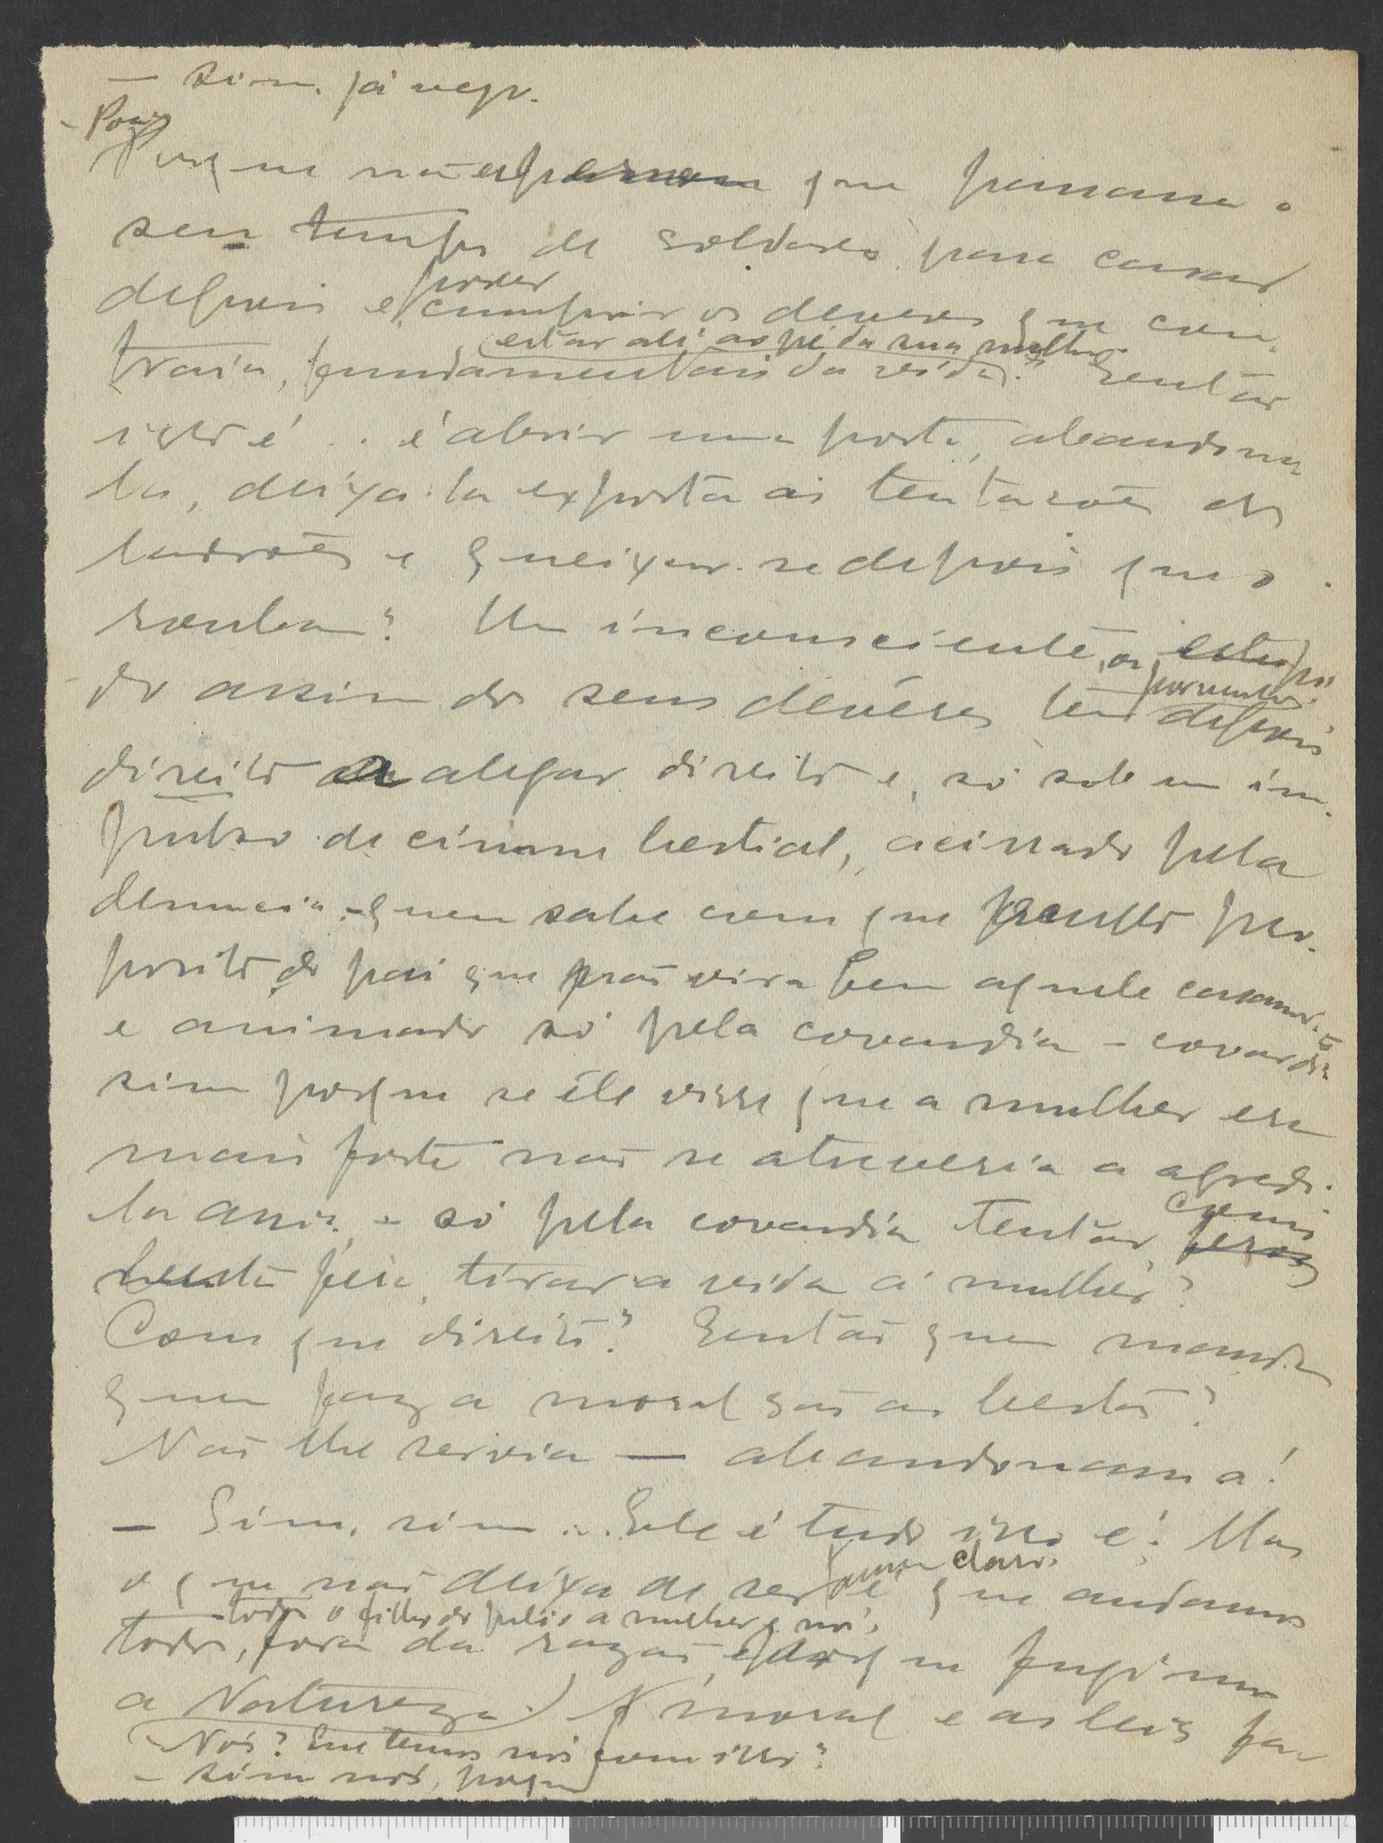 — Sim, já vejo.
- Pois
Porque não esperou que passasse o
seu tempo de soldado, para casar
depois e poder cumprir os deveres que con-
estar ali ao pé da sua mulher.
traía, fundamentais da vida? Então
isto é... é abrir uma porta, abandona-
la, deixa-la exposta ás tentações dos
ladrões e queixar-se depois que o
roubam? Um inconsciente,
do assim dos seus devêres tem depois
porventura
direito a alegar direito e, só sob um im-
pulso de ciume bestial, acirrado pela
denuncia - quem sabe com que oculto pro-
posito do pai que não vira bem aquele casamento
e animado só pela covardia - covardia
sim porque se êle visse que a mulher era
mais forte não se atreveria a agredi-
la assim - só pela covardia tentar, como
besta fera, tirar a vida á mulher?
Com que direito? Então quem manda
quem faz a moral são as bestas?
Não lhe servia — abandonava-a!
— Sim, sim... Ele é tudo isso é. Mas
o que não deixa de ser claro é que andamos
todos o filho do Julio a mulher e nós,
todos, fora da razão, porque fugimos
a Natureza. A moral e as leis
- Nós? Que temos nós com isso?
- Sim nós, porque